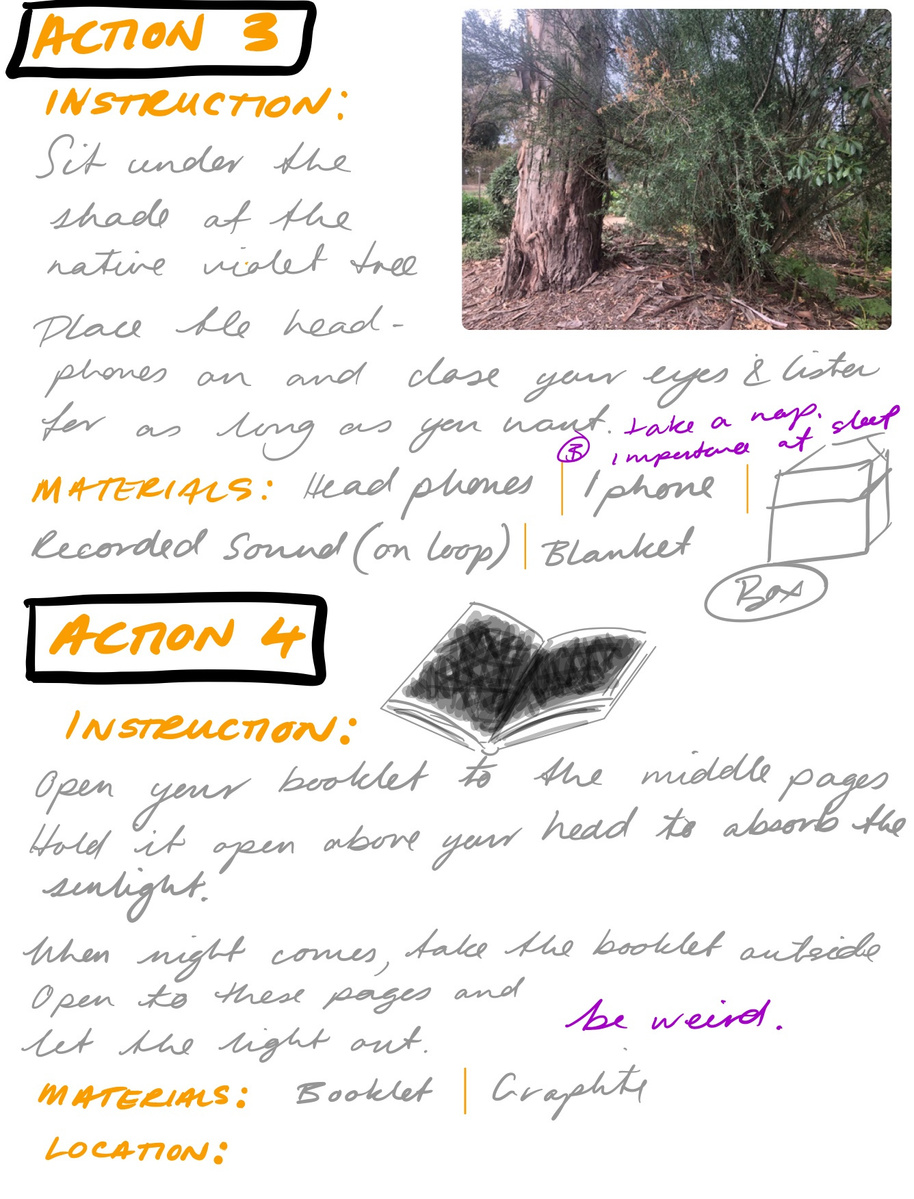 ACTION 3
INSTRUCTION:
Sit under the
shade of the
native violet tree
Place the head-
phones on and close your eyes & listen
for as long as you want. take a nap.
importance of sleep
MATERIALS: Head phones | Iphone |
Recorded Sound (on loop) | Blanket
Box
ACTION 4
INSTRUCTION:
Open your booklet to the middle pages
Hold it open above your head to absorb the
sunlight.
When night comes, take the booklet outside
Open to these pages and
let the light out.
be weird.
MATERIALS: Booklet | Graphite
LOCATION: